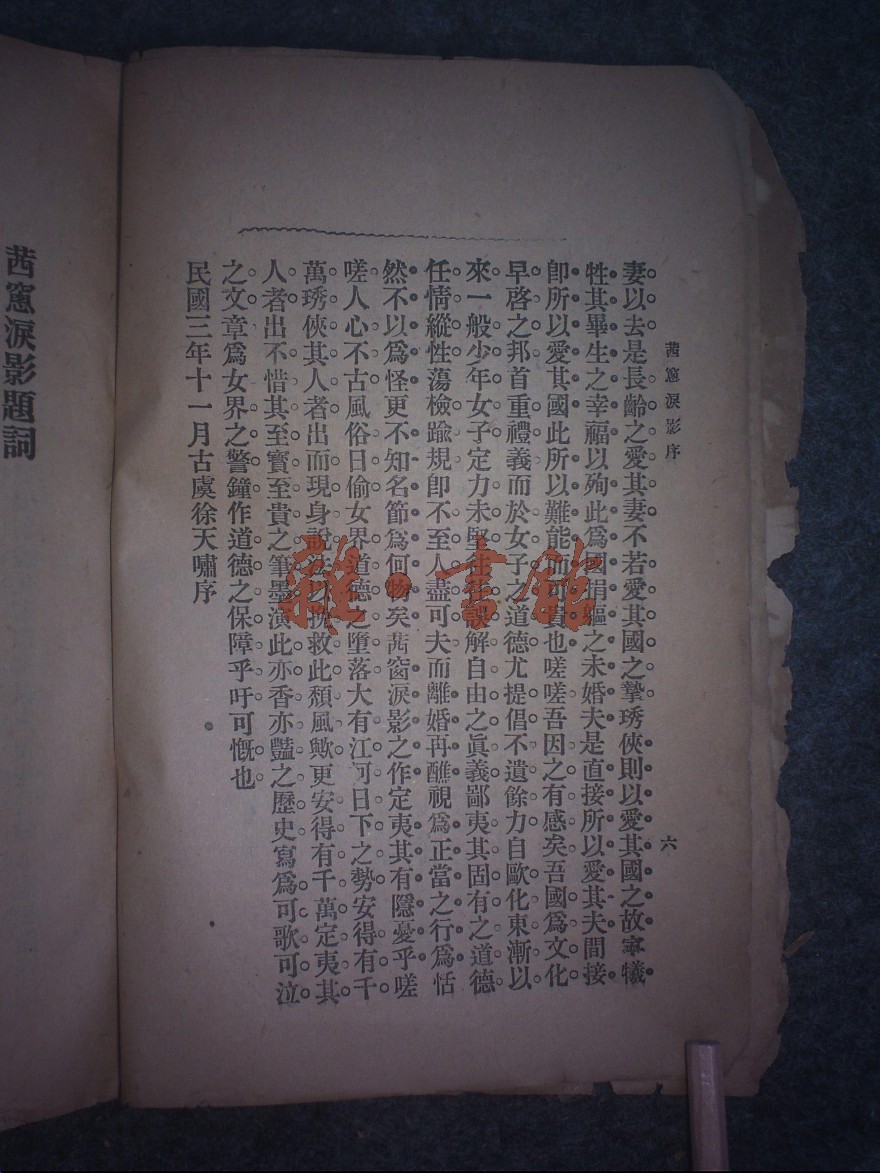 茜窻淚影序
六
妻以去是長齡之愛其妻不若愛其國之摯琇俠則以愛其國之故寧犧
牲其畢生之幸福以殉此爲國捐軀之未婚夫是直接所以愛其夫間接
卽所以愛其國此所以難能而可貴也嗟嗟吾因之有感矣吾國爲文化
早啓之邦首重禮義而於女子之道德尤提倡不遺餘力自歐化東漸以
來一般少年女子定力未堅往往誤解自由之眞義鄙夷其固有之道德
任情縱性蕩檢踰規卽不至人盡可夫而離婚再醮視爲正當之行爲恬
然不以爲怪更不知名節爲何物矣茜窗淚影之作定夷其有隱憂乎嗟
嗟人心不古風俗日偷女界道德之墮落大有江河日下之勢安得有千
萬琇俠其人者出而現身說法以挽救此頹風歟更安得有千萬定夷其
人者出不惜其至寳至貴之筆墨演此亦香亦豔之歷史寫爲可歌可泣
之文章爲女界之警鐘作道德之保障乎吁可慨也
民國三年十一月古虞徐天嘯序
茜窻淚影題詞
雜·書館